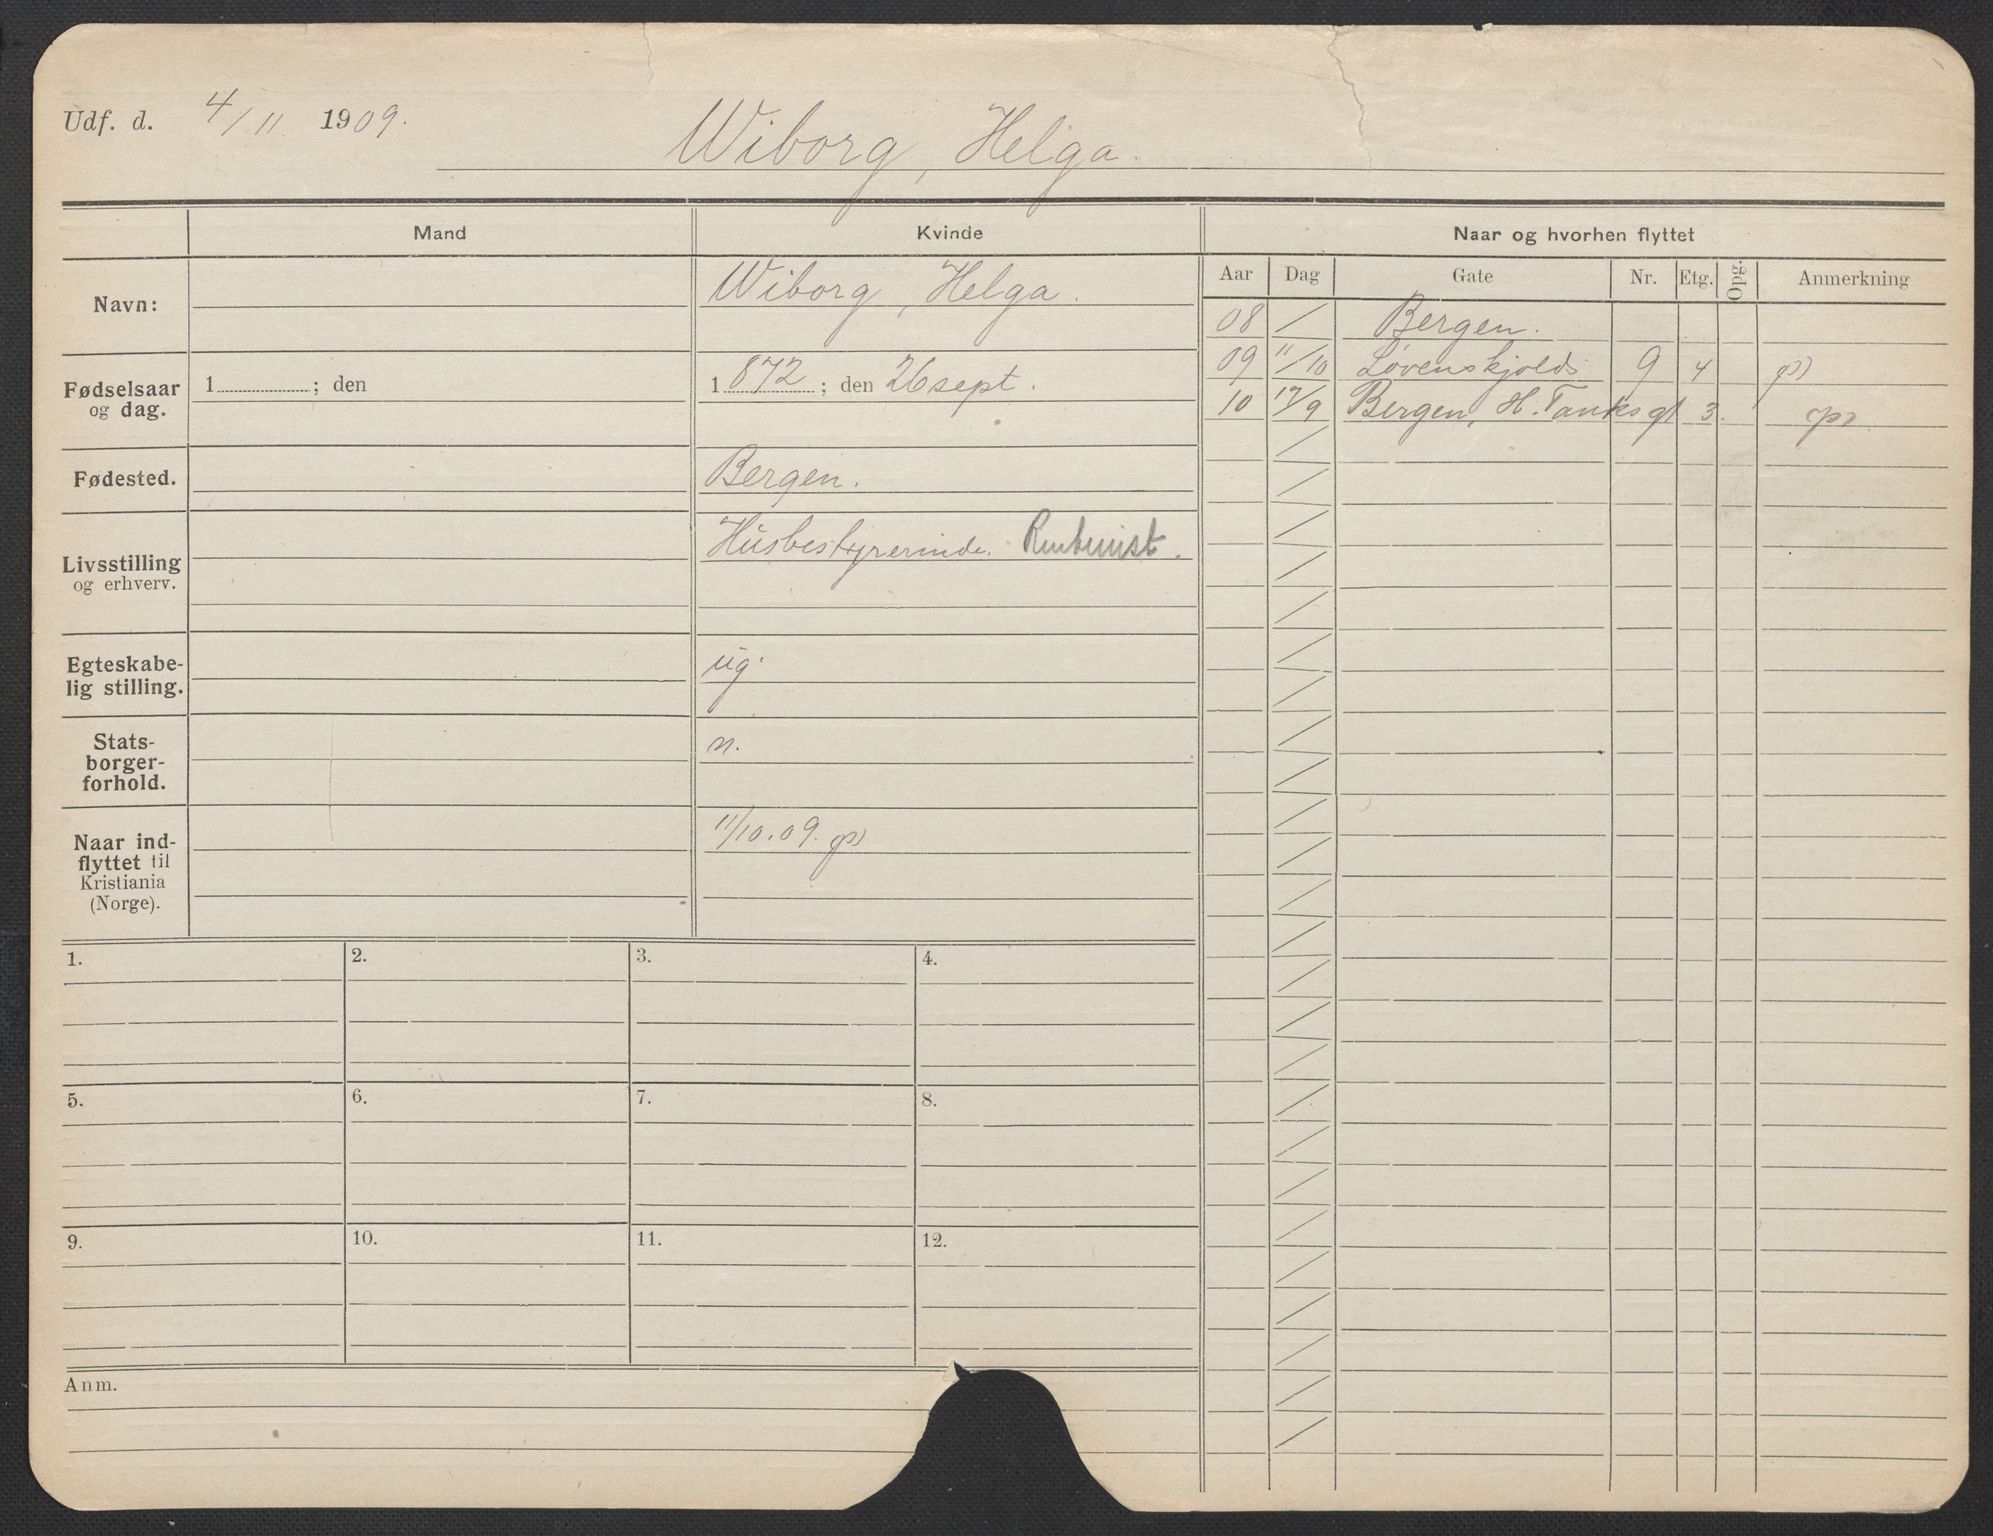 Udf. d. 4/11. 1909.
Wiborg, Helga.
Mand
Kvinde
Naar og hvorhen flyttet
Navn:
Wiborg, Helga.
Fødselsaar
og dag.
1 ; den
1872 ; den 26 sept.
Fødested.
Bergen.
Livsstilling
og erhverv.
Husbestyrerinde.
Egteskabe-
lig stilling.
ug.
Stats-
borger-
forhold.
n.
Naar ind-
flyttet til
Kristiania
(Norge).
11/10.09.
Aar Dag Gate Nr. Etg. Opg. Anmerkning
08 / Bergen.
09 11/10 Løvenskjolds 9 4
10 17/9 Bergen, H. Tanks gt 3.
1.
2.
3.
4.
5.
6.
7.
8.
9.
10.
11.
12.
Anm.